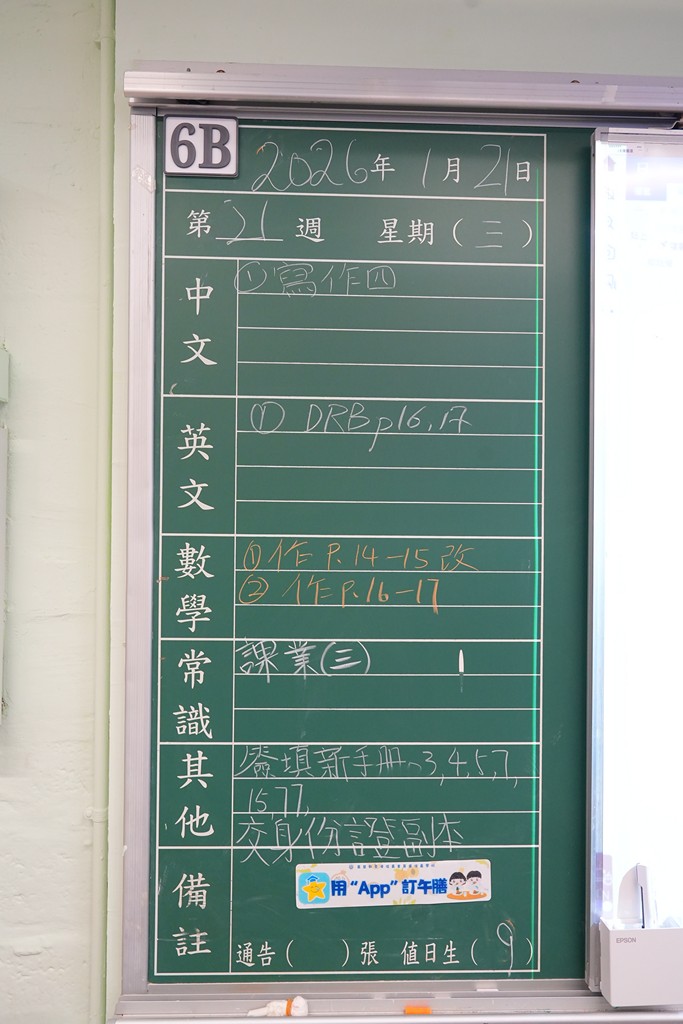 6B
2026年 1月 21日
第 21 週 星期（三）
中文
① 寫作四
英文
① DRB p16,17
數學
① 作 P.14-15 改
② 作 P.16-17
常識
課業(三)
其他
填新手冊、3,4,5,7,
15,77,
交身份證副本
備註
用“App”訂午膳
通告（ ）張 值日生（9）
EPSON